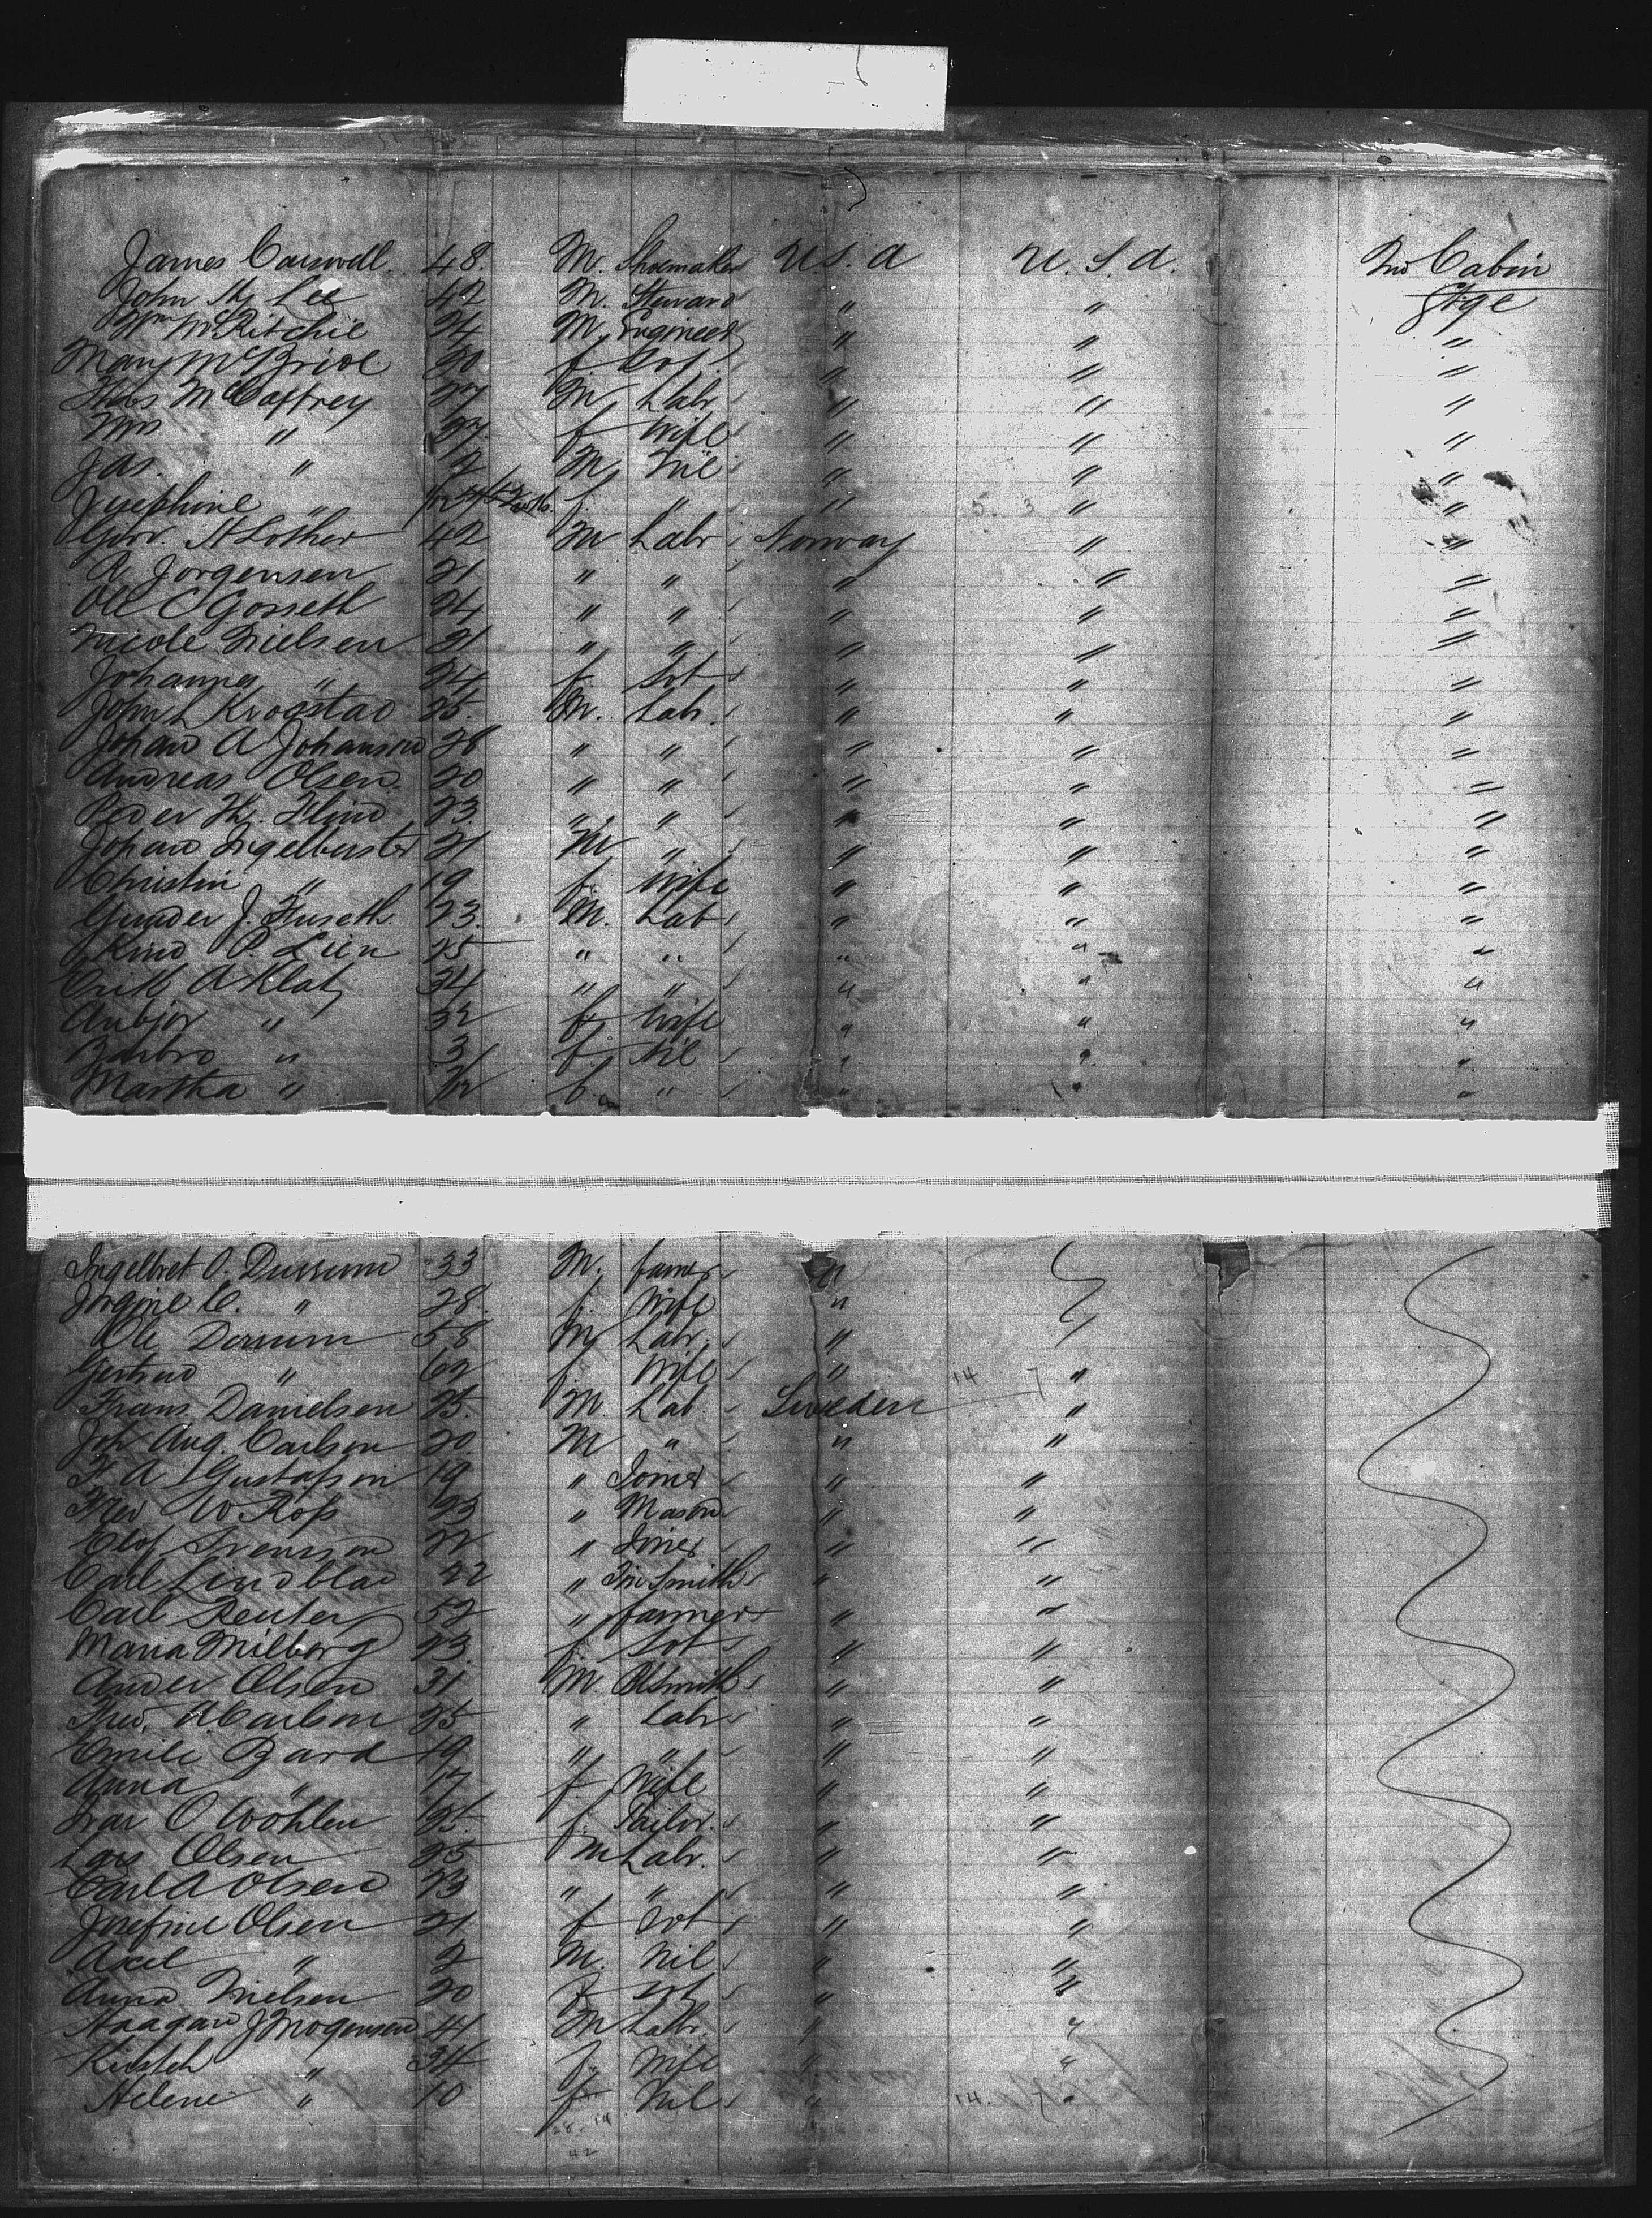 James Carswell 48. M. Shoemaker U.S.A U.S.A. 2nd Cabin
John Hy Lee 42 M. Steward " " Stge
Wm McRitchie 24 M. Engineer " " "
Mary McBride 20 f. " " "
Thos McCaffrey 27 M. Labr " " "
Mrs " 27 f. Wife " " "
Jas. " 2 M. Nil " " "
Josephine " f. " " " "
H Lother 42 M Labr Norway " "
A Jorgensen 21 " " " " "
Ole C Gosseth 24 " " " " "
Nicole Nielsen 21 " " " " "
Johannes " 24 f. Svt " " "
John L Krogstad 25. M. Labr. " " "
Johan A Johansen 28 " " " " "
Andreas Olsen 20 " " " " "
Peder Hy. Flind 23 " " " " "
Johan Ingelbuster 21 M " " " "
Christin " 19 f. Wife " " "
Gunder J. Fuseth 23. M. Labr " " "
P. Lien 25 " " " " "
Erik A Klat 34 " " " " "
Anbjor " 32 f. Wife " " "
Barbro " 3 f. Nil " " "
Martha " f. " " " "
Ingelbret O. Dussum 33 M. farmer "
Jorgine C. " 28. f. Wife "
Ole Dersum 58 M Labr. "
Gertrud " 62 f. Wife " 14 7 "
Frans Danielsen 25. M. Lab. Sweden "
Joh Aug. Carlson 20. M " " "
F A Gustafson 19 " Joiner " "
Fred W Ross 23 " Mason " "
Olof Svensson 22 " Joiner " "
Carl Lindblad 22 " Tin Smith " "
Carl Reuter 52 " farmer " "
Maria Milberg 23. f. Svt " "
Ander Olsen 31 M. Blsmith " "
Fred. A Carlson 25 " Labr " "
Emile Bard 19 " " " "
Anna " 17 f. Wife " "
Ivar O Wohlen 25. f. Tailor. " "
Lars Olsen 25 M Labr. " "
Carl A Olsen 23 " " " "
Josefine Olsen 21 f Svt " "
Axel " 2 M. Nil " "
Anna Nielsen 20 f svt " "
Haagan J Mogensen 41 M Labr. " "
Kirsteh " 34 f. Wife " "
Helene " 10 f Nil " 14. "
28. 14
42